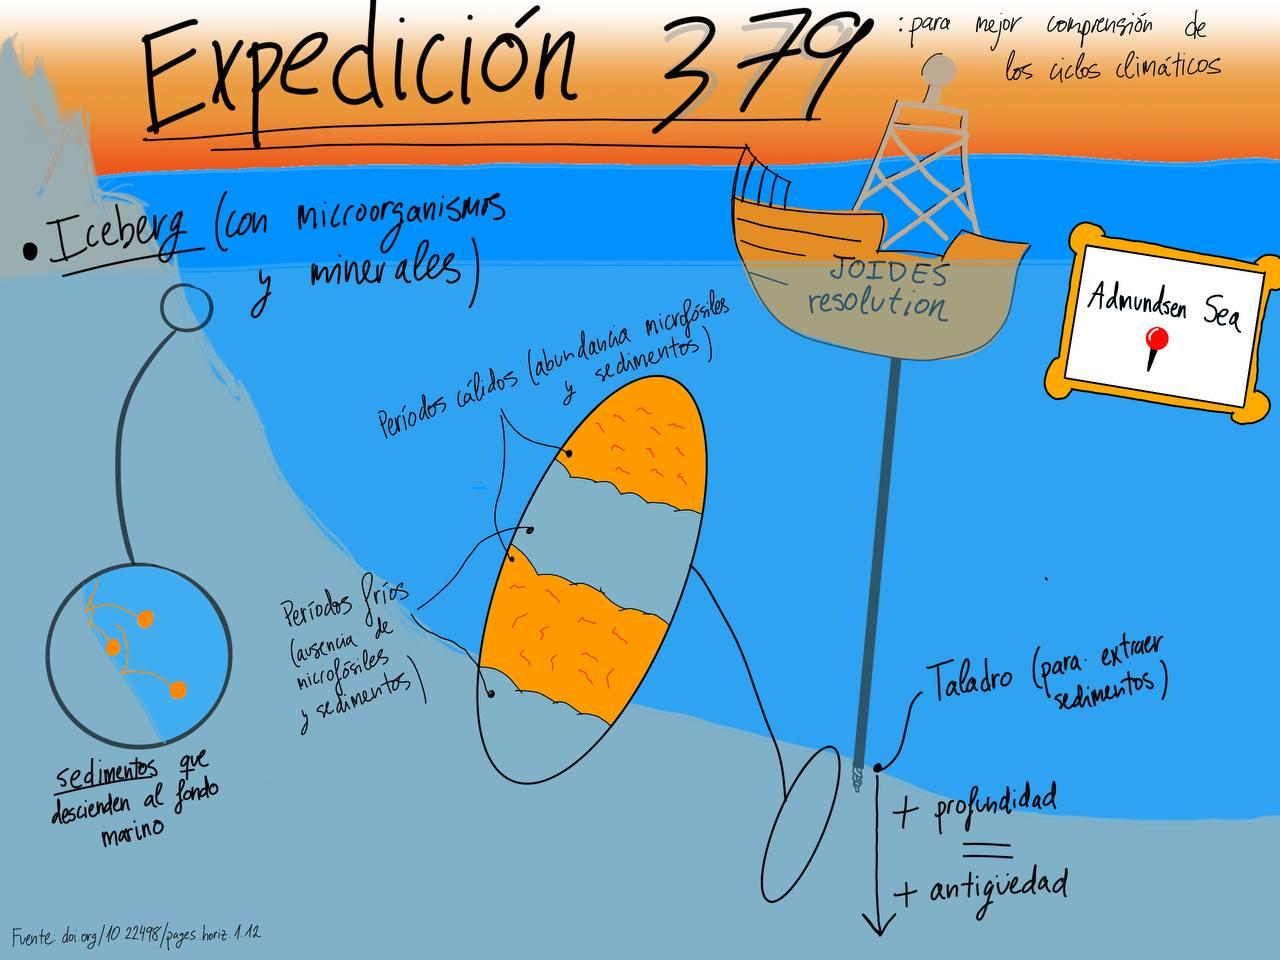 Expedición 379
: para mejor comprensión de
los ciclos climáticos
• Iceberg (con microorganismos
y minerales)
JOIDES
resolution
Admundsen Sea
Períodos cálidos (abundancia microfósiles
y sedimentos)
Períodos fríos
(ausencia de
microfósiles
y sedimentos)
Taladro (para extraer
sedimentos)
sedimentos que
descienden al fondo
marino
+ profundidad
=
+ antigüedad
Fuente: doi.org/10.22498/pages.horiz.1.12